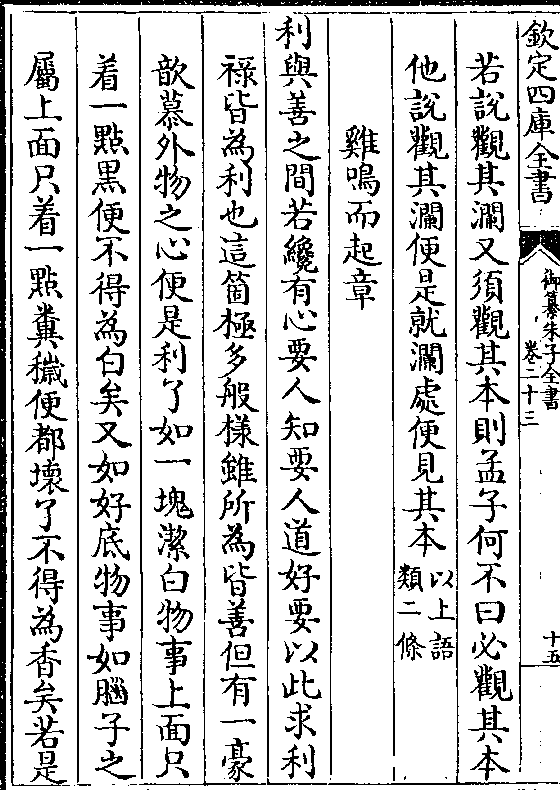 欽定四庫全書
御纂朱子全書
卷二十三
十五
若說觀其瀾又須觀其本則孟子何不曰必觀其本
他說觀其瀾便是就瀾處便見其本以上語
類二條
雞鳴而起章
利與善之間若纔有心要人知要人道好要以此求利
祿皆為利也這箇極多般樣雖所為皆善但有一豪
歆慕外物之心便是利了如一塊潔白物事上面只
着一點黑便不得為白矣又如好底物事如腦子之
屬上面只着一點糞穢便都壞了不得為香矣若是